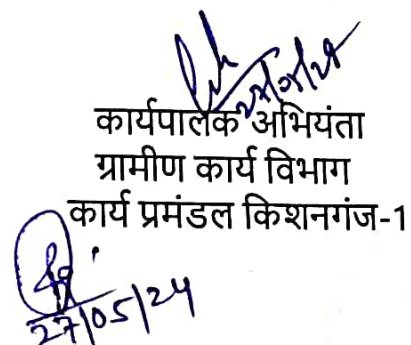 कार्यपालक अभियंता
ग्रामीण कार्य विभाग
कार्य प्रमंडल किशनगंज-1
27/05/24